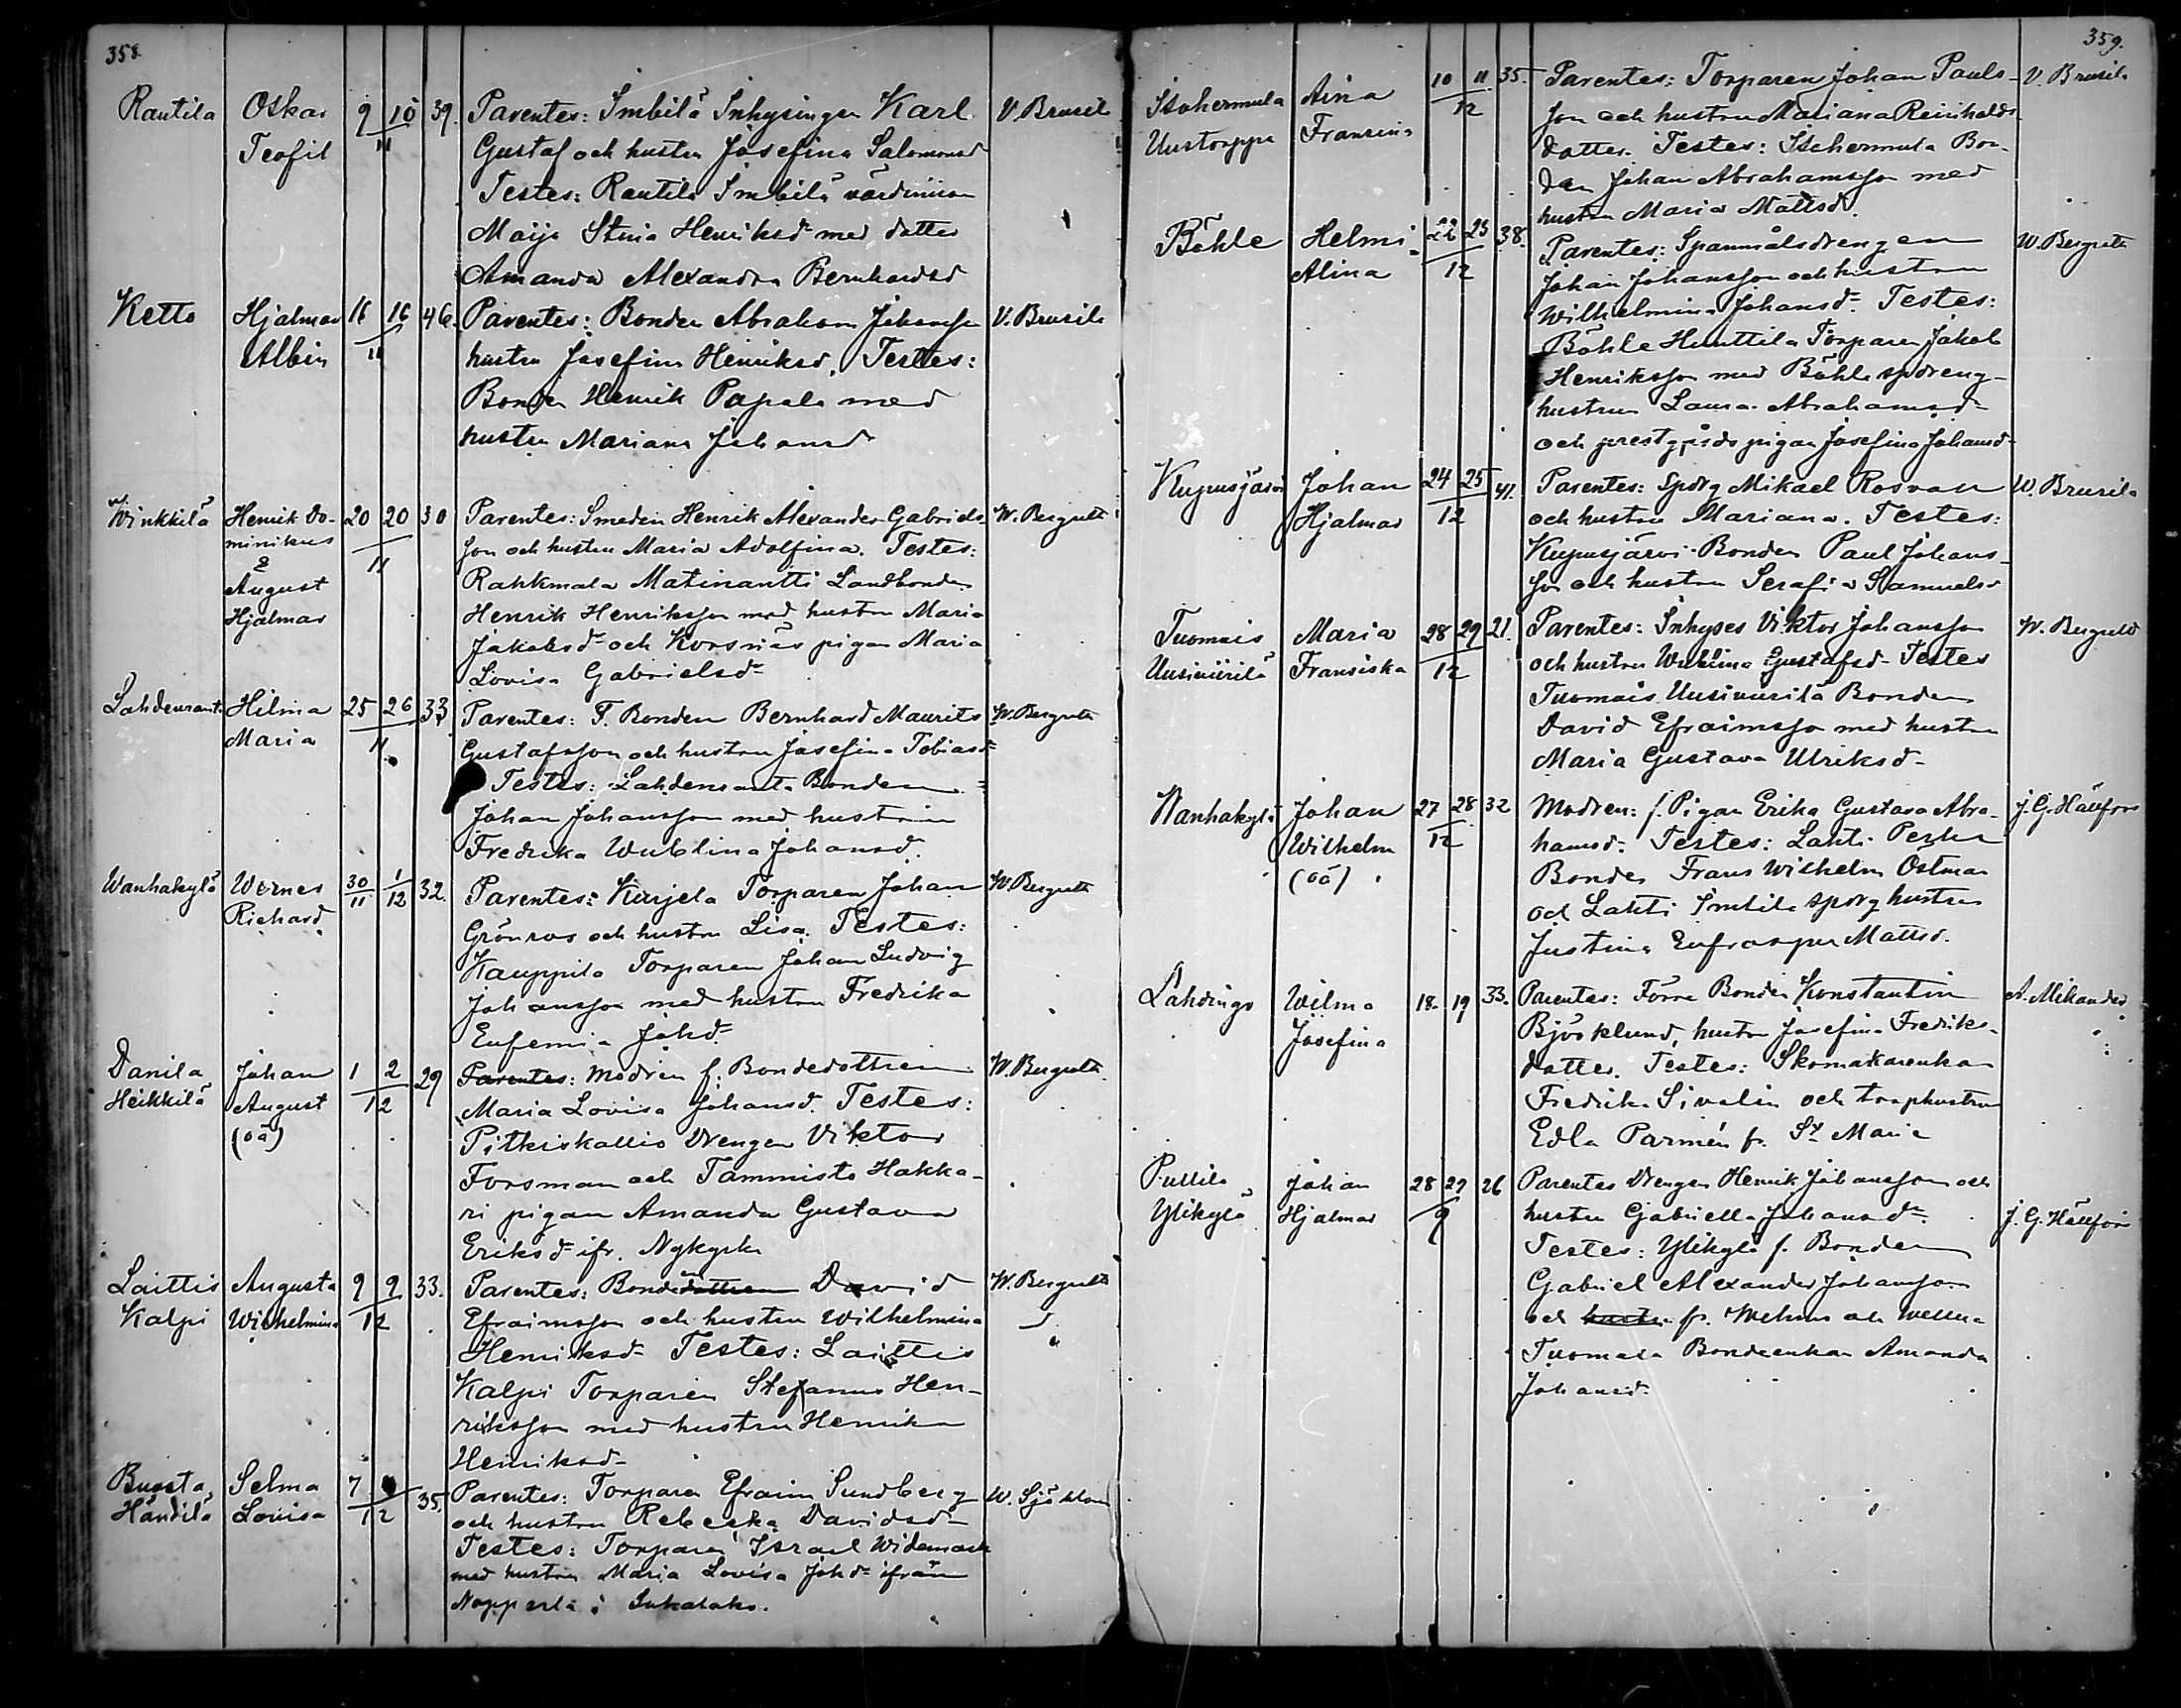 358.
Rautila Oskar Teofil 9 10/11 39. Parentes: Imbilä Inhysingen Karl V. Brusil
Gustaf och hustru Josefina Salomonsd
Testes: Rautila Imbilä värdinnan
Maija Stina Henriksd med dotter
Amanda Alexandra Bernhardsd
Ketto Hjalmar Albin 16 16/11 46. Parentes: Bonden Abraham Johansson V. Brusil
hustru Josefina Henriksd, Testes:
Bonden Henrik Papala med
hustru Mariana Johansd
Winkkilä Henrik Do-minikus & August Hjalmar 20 20/11 30 Parentes: Smeden Henrik Alexander Gabriels- W. Bergroth
son och hustru Maria Adolfina. Testes:
Rahkmala Matinantti Landbonden
Henrik Henriksson med hustru Maria
Jakobsd och Korsnäs pigan Maria
Lovisa Gabrielsd
Lahdenranta Hilma Maria 25 26/11 33 Parentes: F. Bonden Bernhard Maurits W. Bergroth
Gustafsson och hustru Josefina Tobiasd
Testes: Lahdenranta Bonden
Johan Johansson med hustrun
Fredrika Wublina Johansd.
Wanhakylä Werner Richard 30/11 1/12 32. Parentes: Karjela Torparen Johan W. Bergroth
Grönroos och hustru Lisa. Testes:
Kauppila Torparen Johan Ludvig
Johansson med hustru Fredrika
Eufemia Johd
Danila Heikkilä Johan August (oä) 1 2/12 29 Parentes: Modren f. Bondedottren W. Bergroth
Maria Lovisa Johansd. Testes:
Pitkiskallio Drengen Viktor
Forsman och Tammisto Hakka-
ri pigan Amanda Gustava
Eriksd ifr. Nykyrka
Laittis Kalpi Augusta Wilhelmina 9 9/12 33. Parentes: Bonden David W. Bergroth
Efraimsson och hustru Wilhelmina
Henriksd Testes: Laittis
Kalpi Torparen Stefanus Hen-
riksson med hustru Henrika
Henriksd
Buasta, Händilä Selma Lovisa 7 /12 35. Parentes: Torparen Efraim Sundberg W. Sjöblom
och hustru Rebecka Davidsd
Testes: Torparen Israel Widemark
med hustru Maria Lovisa Johd ifrån
Nopperla i Lokalaks.
359.
Aina Fransina 10 11/12 35. Parentes: Torparen Johan Pauls- V. Brusila
son och hustru Mariana Reinholds
dotter. Testes: Bon-
den Johan Abrahamsson med
hustru Maria Mattsd.
Böhle Helmi Alina 22 25/12 38. Parentes: Spanmålsdrengen W. Bergroth
Johan Johansson och hustru
Wilhelmina Johansd Testes:
Böhle Hunttila Torparen Jakob
Henriksson med Böhle spdreng-
hustrun Laura Abrahamsd
och prestgårds pigan Josefina Johansd
Kupusjärvi Johan Hjalmar 24 25/12 41. Parentes: Spdrg Mikael Rosvall W. Brusila
och hustru Mariana. Testes:
Kupusjärvi Bonden Paul Johans-
son och hustru Serafia Samuelsd
Tuomois Uusiniirilä Maria Fransiska 28 29/12 21. Parentes: Inhyses Viktor Johansson W. Bergroth
och hustru Wublina Gustafsd Testes
Tuomois Uusiniirilä Bonden
David Efraimsson med hustru
Maria Gustava Ulriksd
Wanhakylä Johan Wilhelm (oä) 27 28/12 32 Modren: f. Pigan Erika Gustava Abra- J. G. Hällfors
hamsd. Testes: Lahti Perho
Bonden Frans Wilhelm Östman
och Lahti Imbilä spdrg hustru
Justina Eufrosyne Mattsd.
Lahdingo Wilma Josefina 18. 19 33. Parentes: Förre Bonden Konstantin A. Mikander
Björklund, hustru Josefina Fredriks-
dotter. Testes: Skomakarenkan
Fredrika Sivelin och torphustrun
Edla Parmén fr. St Marie
Pullila Ylikylä Johan Hjalmar 28 29/9 26 Parentes Drengen Henrik Johansson och
hustru Gabriella Johansd. J. G. Hällfors
Testes: Ylikylä f. Bonden
Gabriel Alexander Johansson
och hustru fr. Wehmo och
Tuomola Bondeenkan Amanda
Johansd.